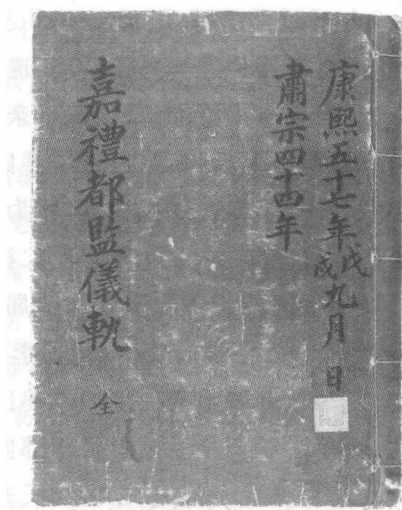 康熙五十七年戊戌九月 日
肅宗四十四年
嘉禮都監儀軌 全